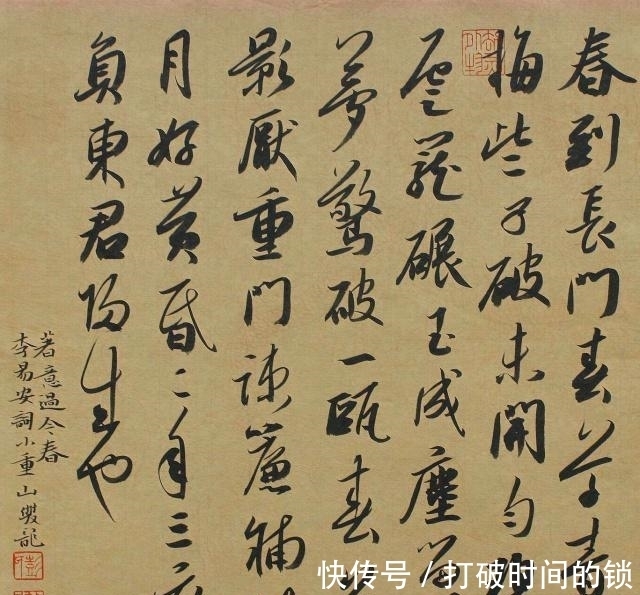 春到長門春草青
梅些子破未開勻
雲籠碾玉成塵
夢驚破一甌春
影厭重門疎簾鋪
月好黃昏二年三度
負東君歸來也
著意過今春
李易安詞小重山
快传号/打破时间的锁